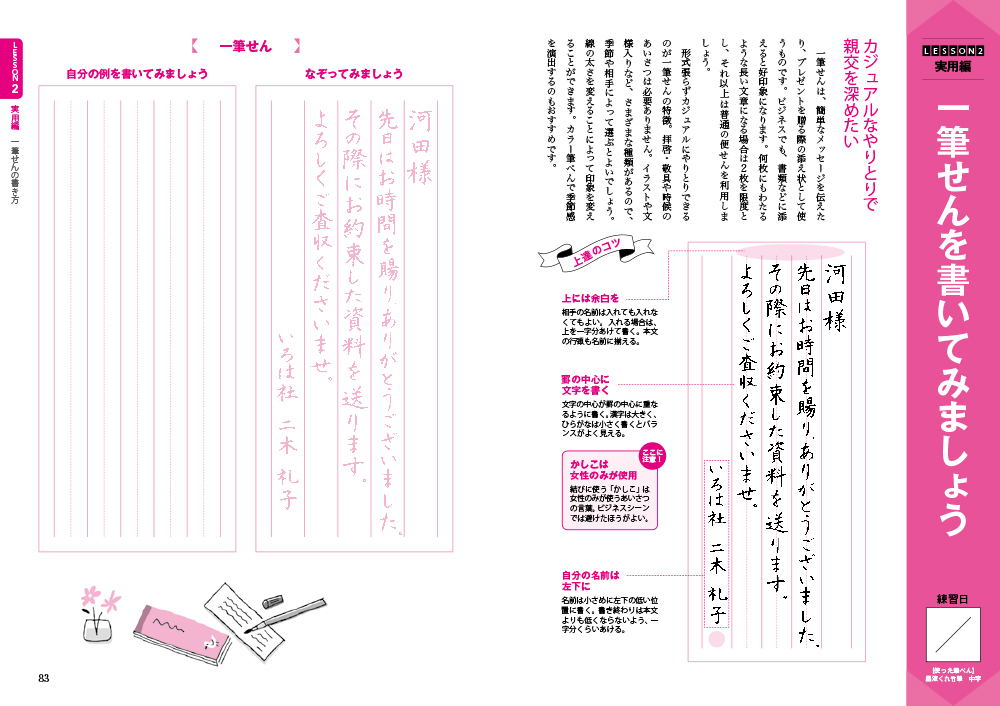 LESSON2
実用編
一筆せんを書いてみましょう
練習日
【使った筆ぺん】
墨液くれ竹筆 中字
カジュアルなやりとりで
親交を深めたい
一筆せんは、簡単なメッセージを伝えた
り、プレゼントを贈る際の添え状として使
うものです。ビジネスでも、書類などに添
えると好印象になります。何枚にもわたる
ような長い文章になる場合は2枚を限度と
し、それ以上は普通の便せんを利用しま
しょう。
形式張らずカジュアルにやりとりできる
のが一筆せんの特徴。拝啓・敬具や時候の
あいさつは必要ありません。イラストや文
様入りなど、さまざまな種類があるので、
季節や相手によって選ぶとよいでしょう。
線の太さを変えることによって印象を変え
ることができます。カラー筆ぺんで季節感
を演出するのもおすすめです。
上達のコツ
河田様
先日はお時間を賜り、ありがとうございました、
その際にお約束した資料を送ります。
よろしくご査収くださいませ。
いろは社 二木 礼子
上には余白を
相手の名前は入れても入れな
くてもよい。入れる場合は、
上を一字分あけて書く。本文
の行頭も名前に揃える。
罫の中心に
文字を書く
文字の中心が罫の中心に重な
るように書く。漢字は大きく、
ひらがなは小さく書くとバラ
ンスがよく見える。
ここに
注意!
かしこは
女性のみが使用
結びに使う「かしこ」は
女性のみが使うあいさつ
の言葉。ビジネスシーン
では避けたほうがよい。
自分の名前は
左下に
名前は小さめに左下の低い位
置に書く。書き終わりは本文
よりも低くならないよう、一
字分くらいあける。
【 一筆せん 】
なぞってみましょう
河田様
先日はお時間を賜り、ありがとうございました。
その際にお約束した資料を送ります。
よろしくご査収くださいませ。
いろは社 二木 礼子
自分の例を書いてみましょう
LESSON 2
実用編
一筆せんの書き方
83